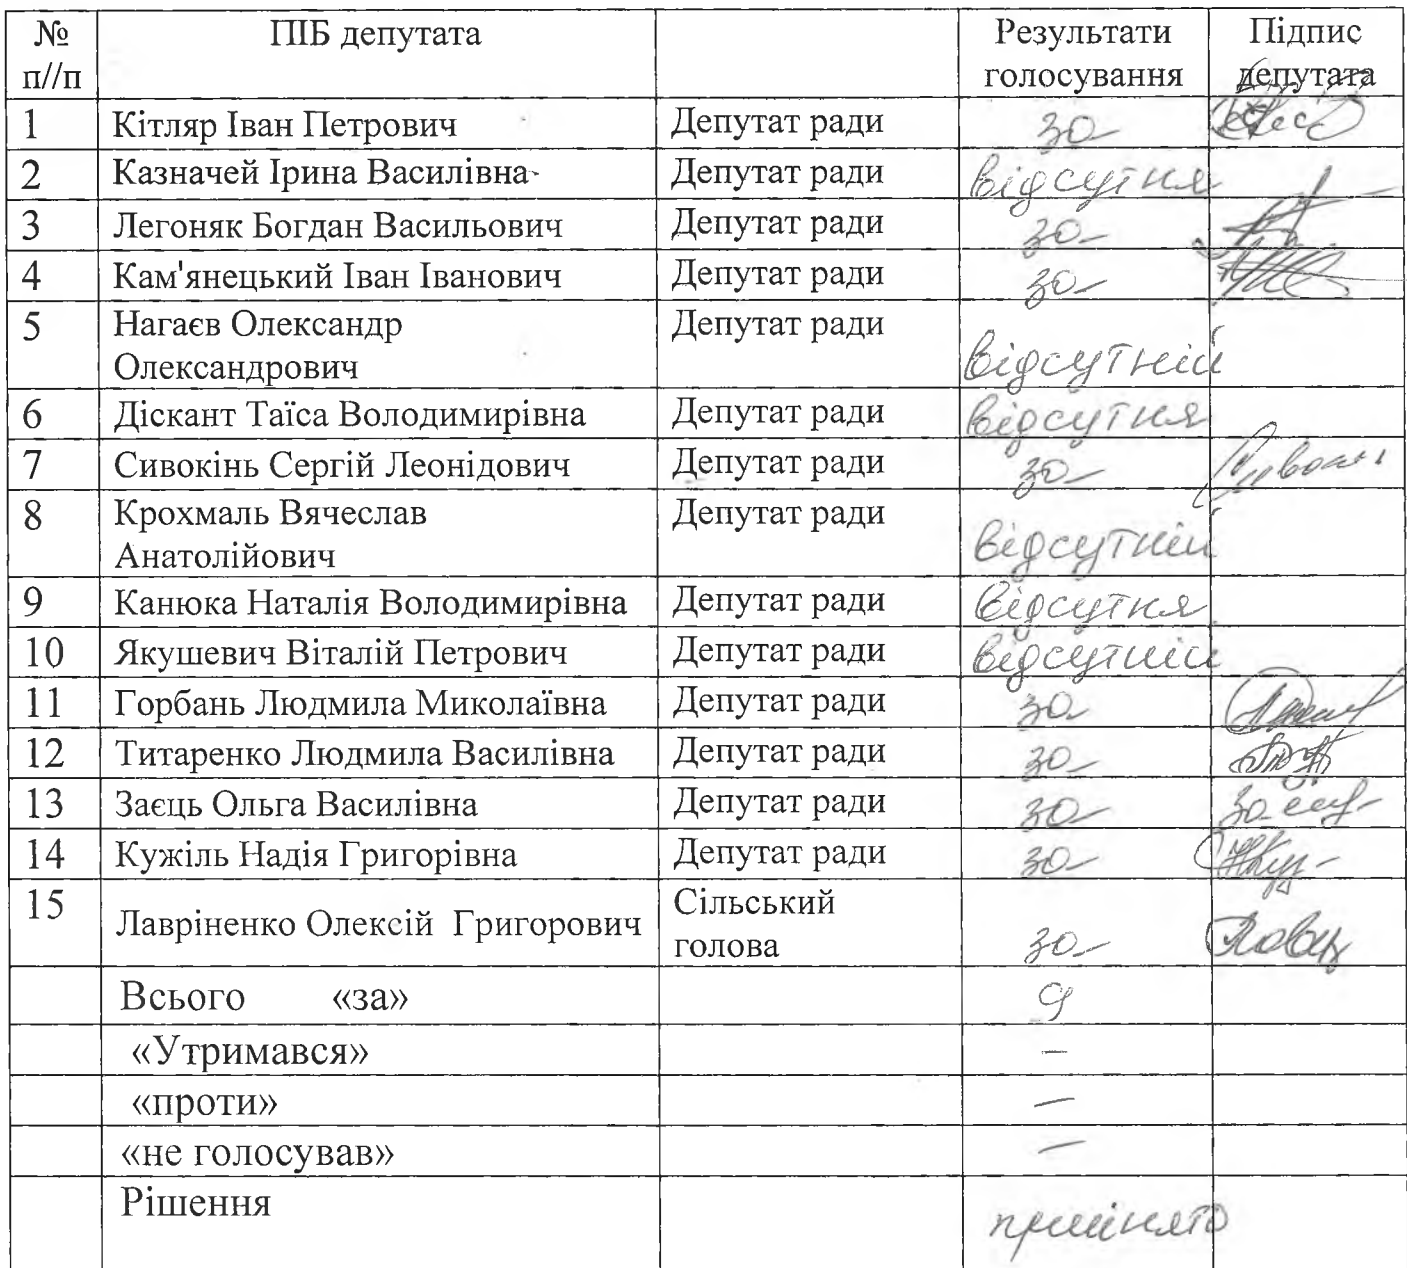 № ПІБ депутата Результати Підпис
п//п голосування депутата
1 Кітляр Іван Петрович Депутат ради за
2 Казначей Ірина Василівна Депутат ради відсутня
3 Легоняк Богдан Васильович Депутат ради за
4 Кам'янецький Іван Іванович Депутат ради за
5 Нагаєв Олександр Депутат ради
Олександрович відсутній
6 Діскант Таїса Володимирівна Депутат ради відсутня
7 Сивокінь Сергій Леонідович Депутат ради за
8 Крохмаль Вячеслав Депутат ради
Анатолійович відсутній
9 Канюка Наталія Володимирівна Депутат ради відсутня
10 Якушевич Віталій Петрович Депутат ради відсутній
11 Горбань Людмила Миколаївна Депутат ради за
12 Титаренко Людмила Василівна Депутат ради за
13 Заєць Ольга Василівна Депутат ради за
14 Кужіль Надія Григорівна Депутат ради за
15 Лавріненко Олексій Григорович Сільський
голова за
Всього «за» 9
«Утримався» –
«проти» –
«не голосував» –
Рішення прийнято